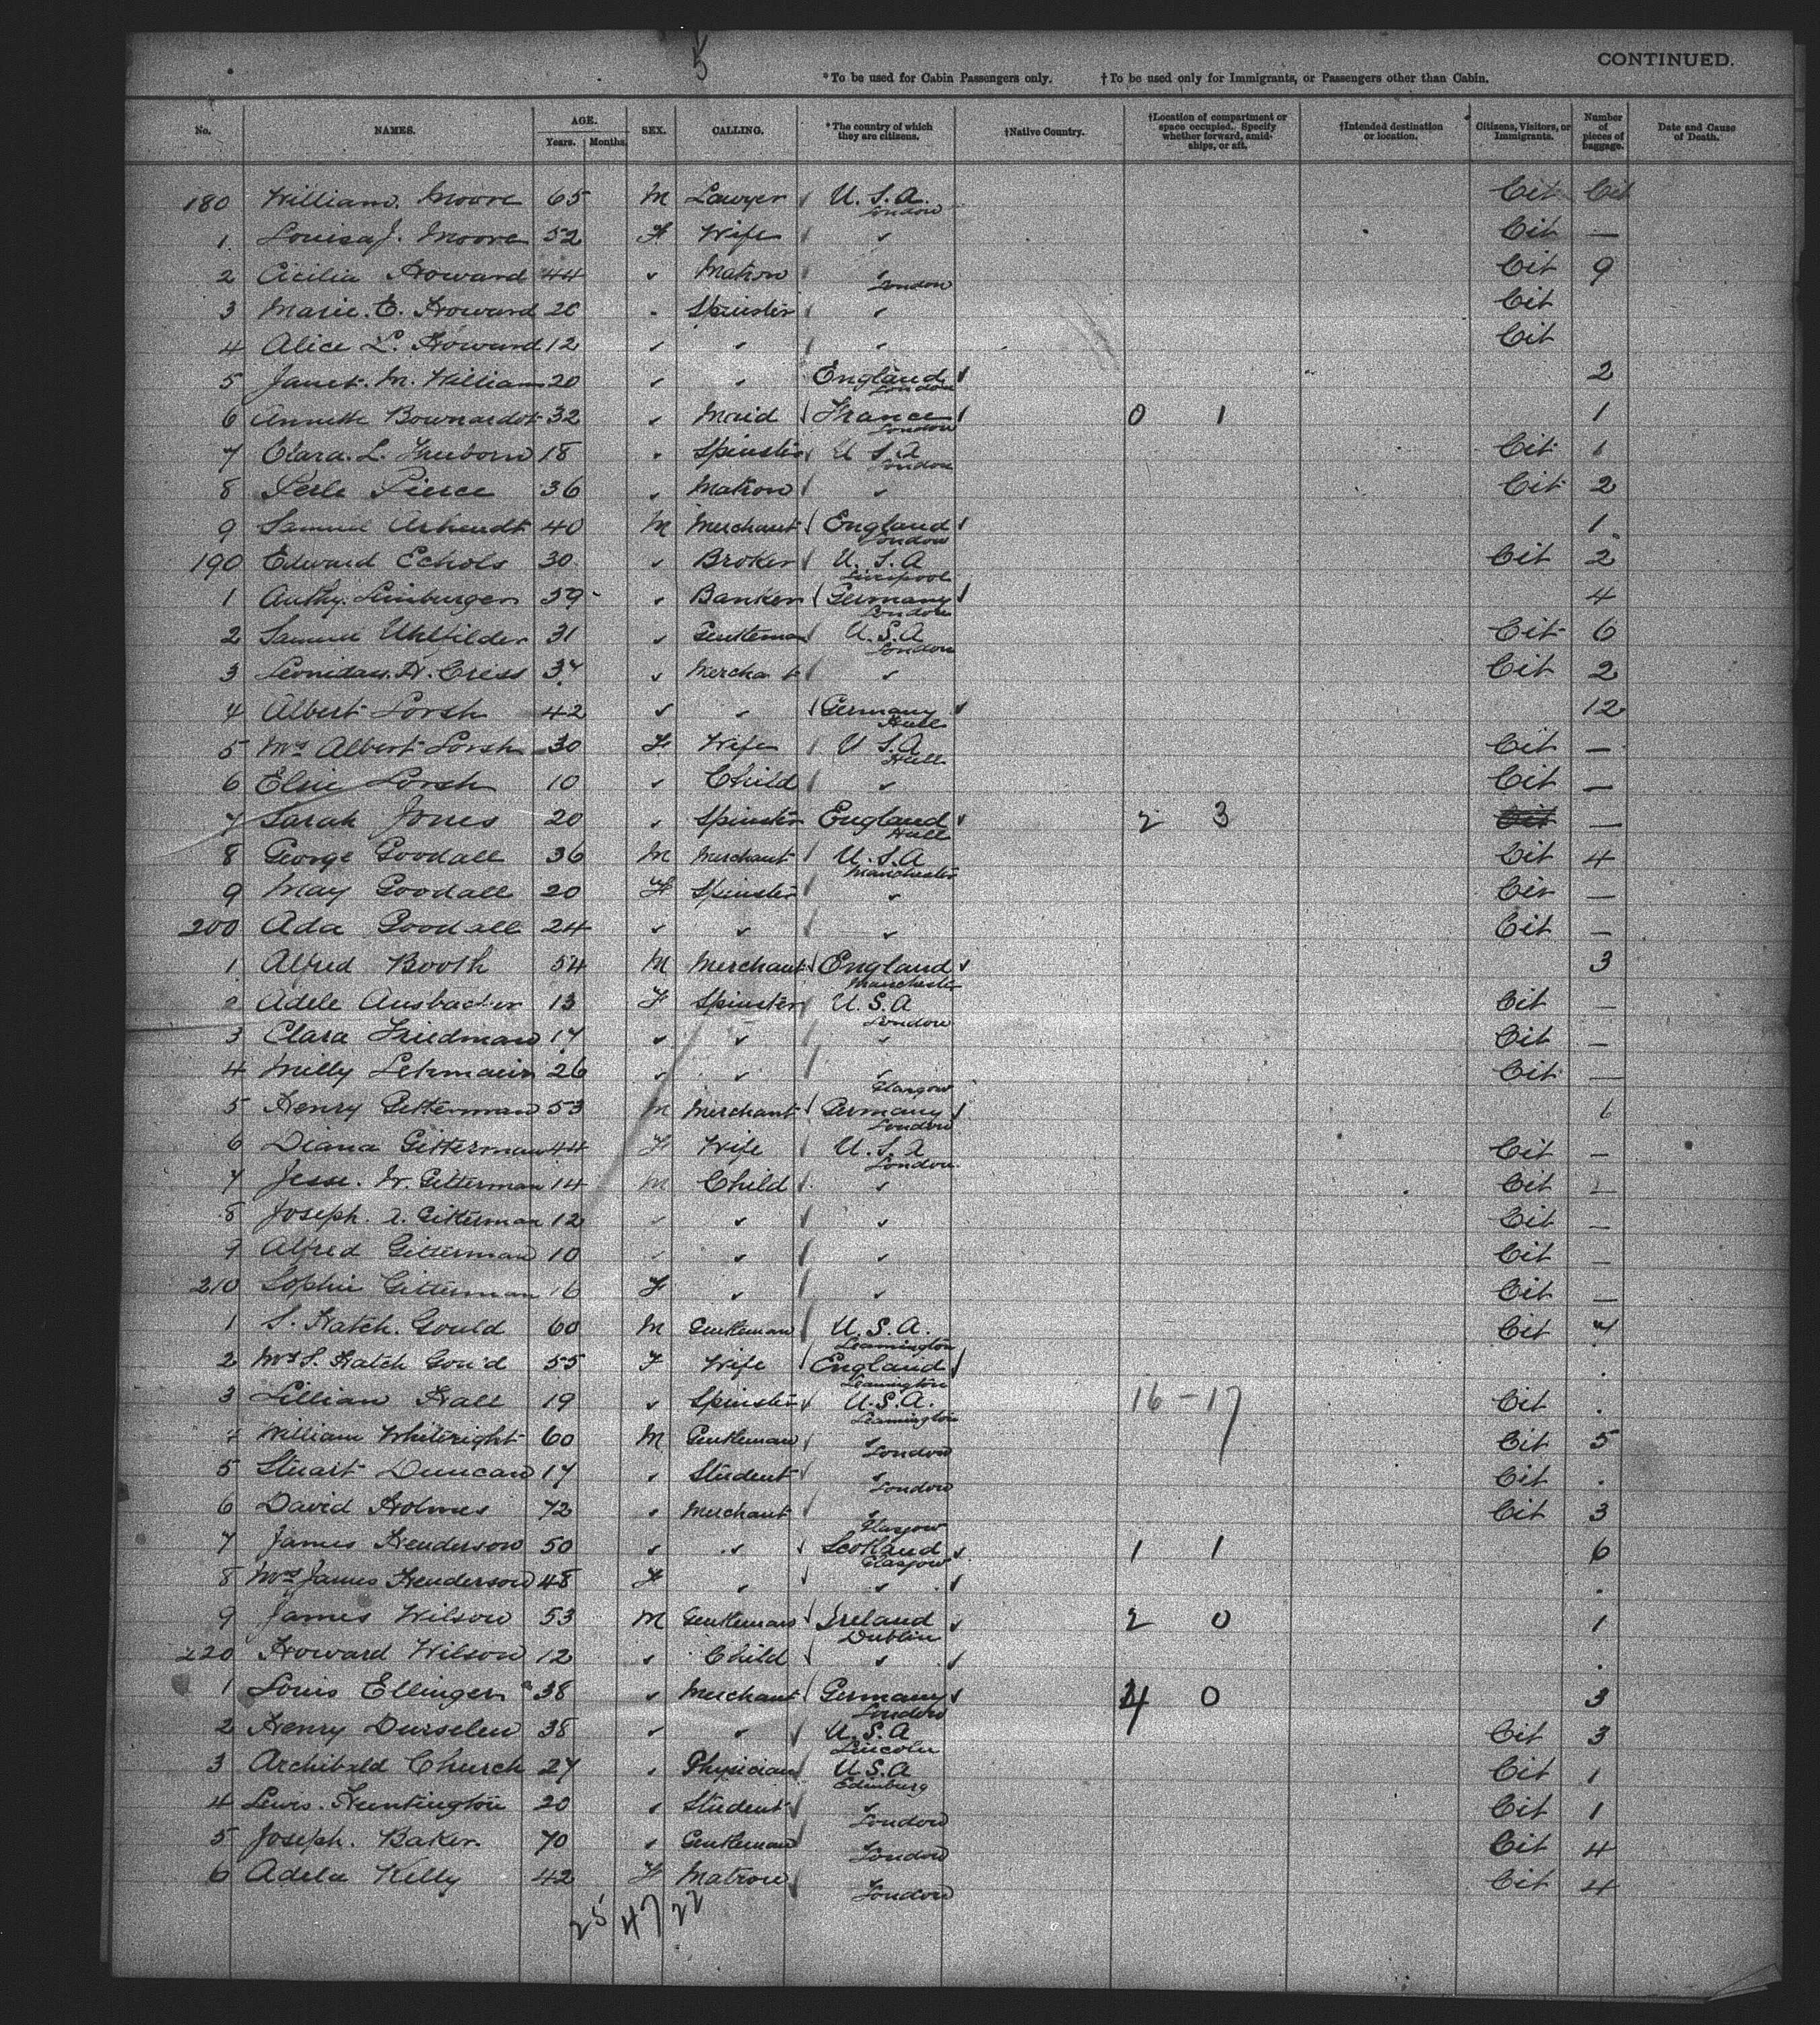 5
CONTINUED.
*To be used for Cabin Passengers only. †To be used only for Immigrants, or Passengers other than Cabin.
No. NAMES. AGE. Years. Months. SEX. CALLING. *The country of which they are citizens. †Native Country. †Location of compartment or space occupied. Specify whether forward, amidships, or aft. †Intended destination or location. Citizens, Visitors, or Immigrants. Number of pieces of baggage. Date and Cause of Death.
180 William Moore 65 M Lawyer U.S.A. London Cit Cit
1 Louisa J. Moore 52 F Wife ✓ Cit —
2 Cicilia Howard 44 ✓ Matron ✓ London Cit 9
3 Marie. E. Howard ✓ Spinster ✓ Cit
4 Alice L. Howard 12 ✓ ✓ ✓ Cit
5 Janet. M. William 20 ✓ ✓ England London 2
6 Annette 32 ✓ Maid France London 0 1 1
7 Clara. L. 18 ✓ Spinster U S A London Cit 1
8 Pierce 36 ✓ Matron ✓ Cit 2
9 Samuel 40 M Merchant England London 1
190 Edward Echols 30 ✓ Broker U.S.A Liverpool Cit 2
1 Limburger 59 ✓ Banker Germany London 4
2 Samuel Uhlfilder 31 ✓ Gentleman U.S.A London Cit 6
3 Leonidas. H. Criss 37 ✓ Merchant ✓ Cit 2
4 Albert Lorsh 42 ✓ ✓ Germany Hull 12
5 Mrs Albert Lorsh 30 F Wife U S.A Hull Cit —
6 Elsie Lorsh 10 ✓ Child ✓ Cit —
7 Sarah Jones 20 ✓ Spinster England Hull 2 3 Cit —
8 George Goodall 36 M Merchant U.S.A Manchester Cit 4
9 May Goodall 20 F Spinster ✓ Cit —
200 Ada Goodall 24 ✓ ✓ ✓ Cit —
1 Alfred Booth 54 M Merchant England Manchester 3
2 Adele Ansbacher 13 F Spinster U.S.A London Cit —
3 Clara Friedman 17 ✓ ✓ ✓ Cit —
4 Milly 26 ✓ ✓ ✓ Glasgow Cit —
5 Henry Gitterman 53 M Merchant Germany London 1
6 Diana Gitterman 44 F Wife U.S.A London Cit —
7 Jesse. Gitterman 14 M Child ✓ Cit —
8 Joseph. Gitterman 12 ✓ ✓ ✓ Cit —
9 Alfred Gitterman 10 ✓ ✓ ✓ Cit —
210 Sophie Gitterman 16 F ✓ ✓ Cit —
1 S. Hatch. Gould 60 M Gentleman U.S.A. Leamington Cit 7
2 Mrs S. Hatch Gould 55 F Wife England Leamington .
3 Lillian Hall 19 ✓ Spinster U.S.A. Leamington 16-17 Cit .
4 William Whitright 60 M Gentleman ✓ London Cit 5
5 Stuart Duncan 17 ✓ Student ✓ London Cit .
6 David Holmes 72 ✓ Merchant ✓ Glasgow Cit 3
7 James Henderson 50 ✓ ✓ Scotland Glasgow 1 1 6
8 Mrs James Henderson 48 F ✓ ✓ .
9 James Wilson 53 M Gentleman Ireland Dublin 2 0 1
220 Howard Wilson 12 ✓ Child ✓ .
1 Louis Ellinger 38 ✓ Merchant Germany London 4 0 3
2 Henry Durselen 38 ✓ ✓ U.S.A Lincoln Cit 3
3 Archibald Church 27 ✓ Physician U.S.A Edinburg Cit 1
4 Lewis. Huntington 20 ✓ Student ✓ London Cit 1
5 Joseph. Baker 70 ✓ Gentleman ✓ London Cit 4
6 Adela Kelly 42 F Matron ✓ London Cit 4
25 47 22